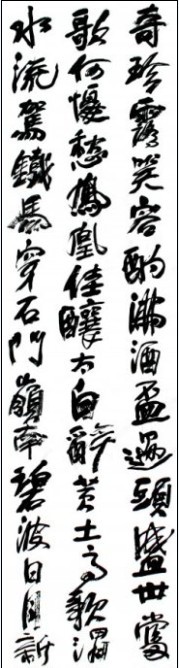 奇珍露笑容酌滿酒盃過頭盛世當
歌何懮愁鳳凰佳釀太白醉黄土高歌
水流駕鐵馬穿石門嶺南碧波日月新